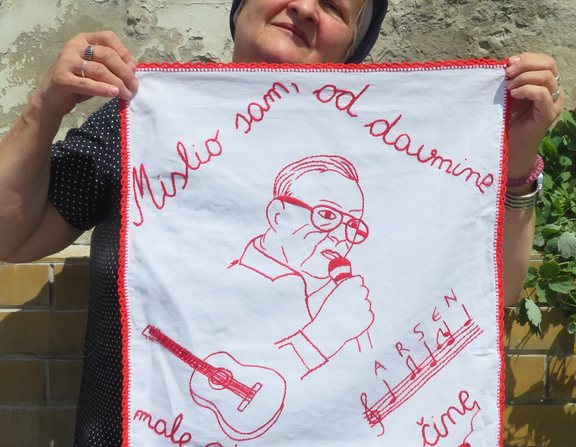 Mislio sam, od davnine
ARSEN
male
čine